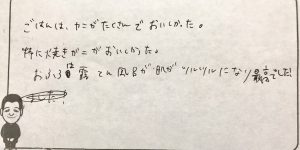 ごはんは、カニがたくさんでおいしかった。
特に焼きガニがおいしかった。
おふろは露てん風呂が肌がツルツルになり最高でした!